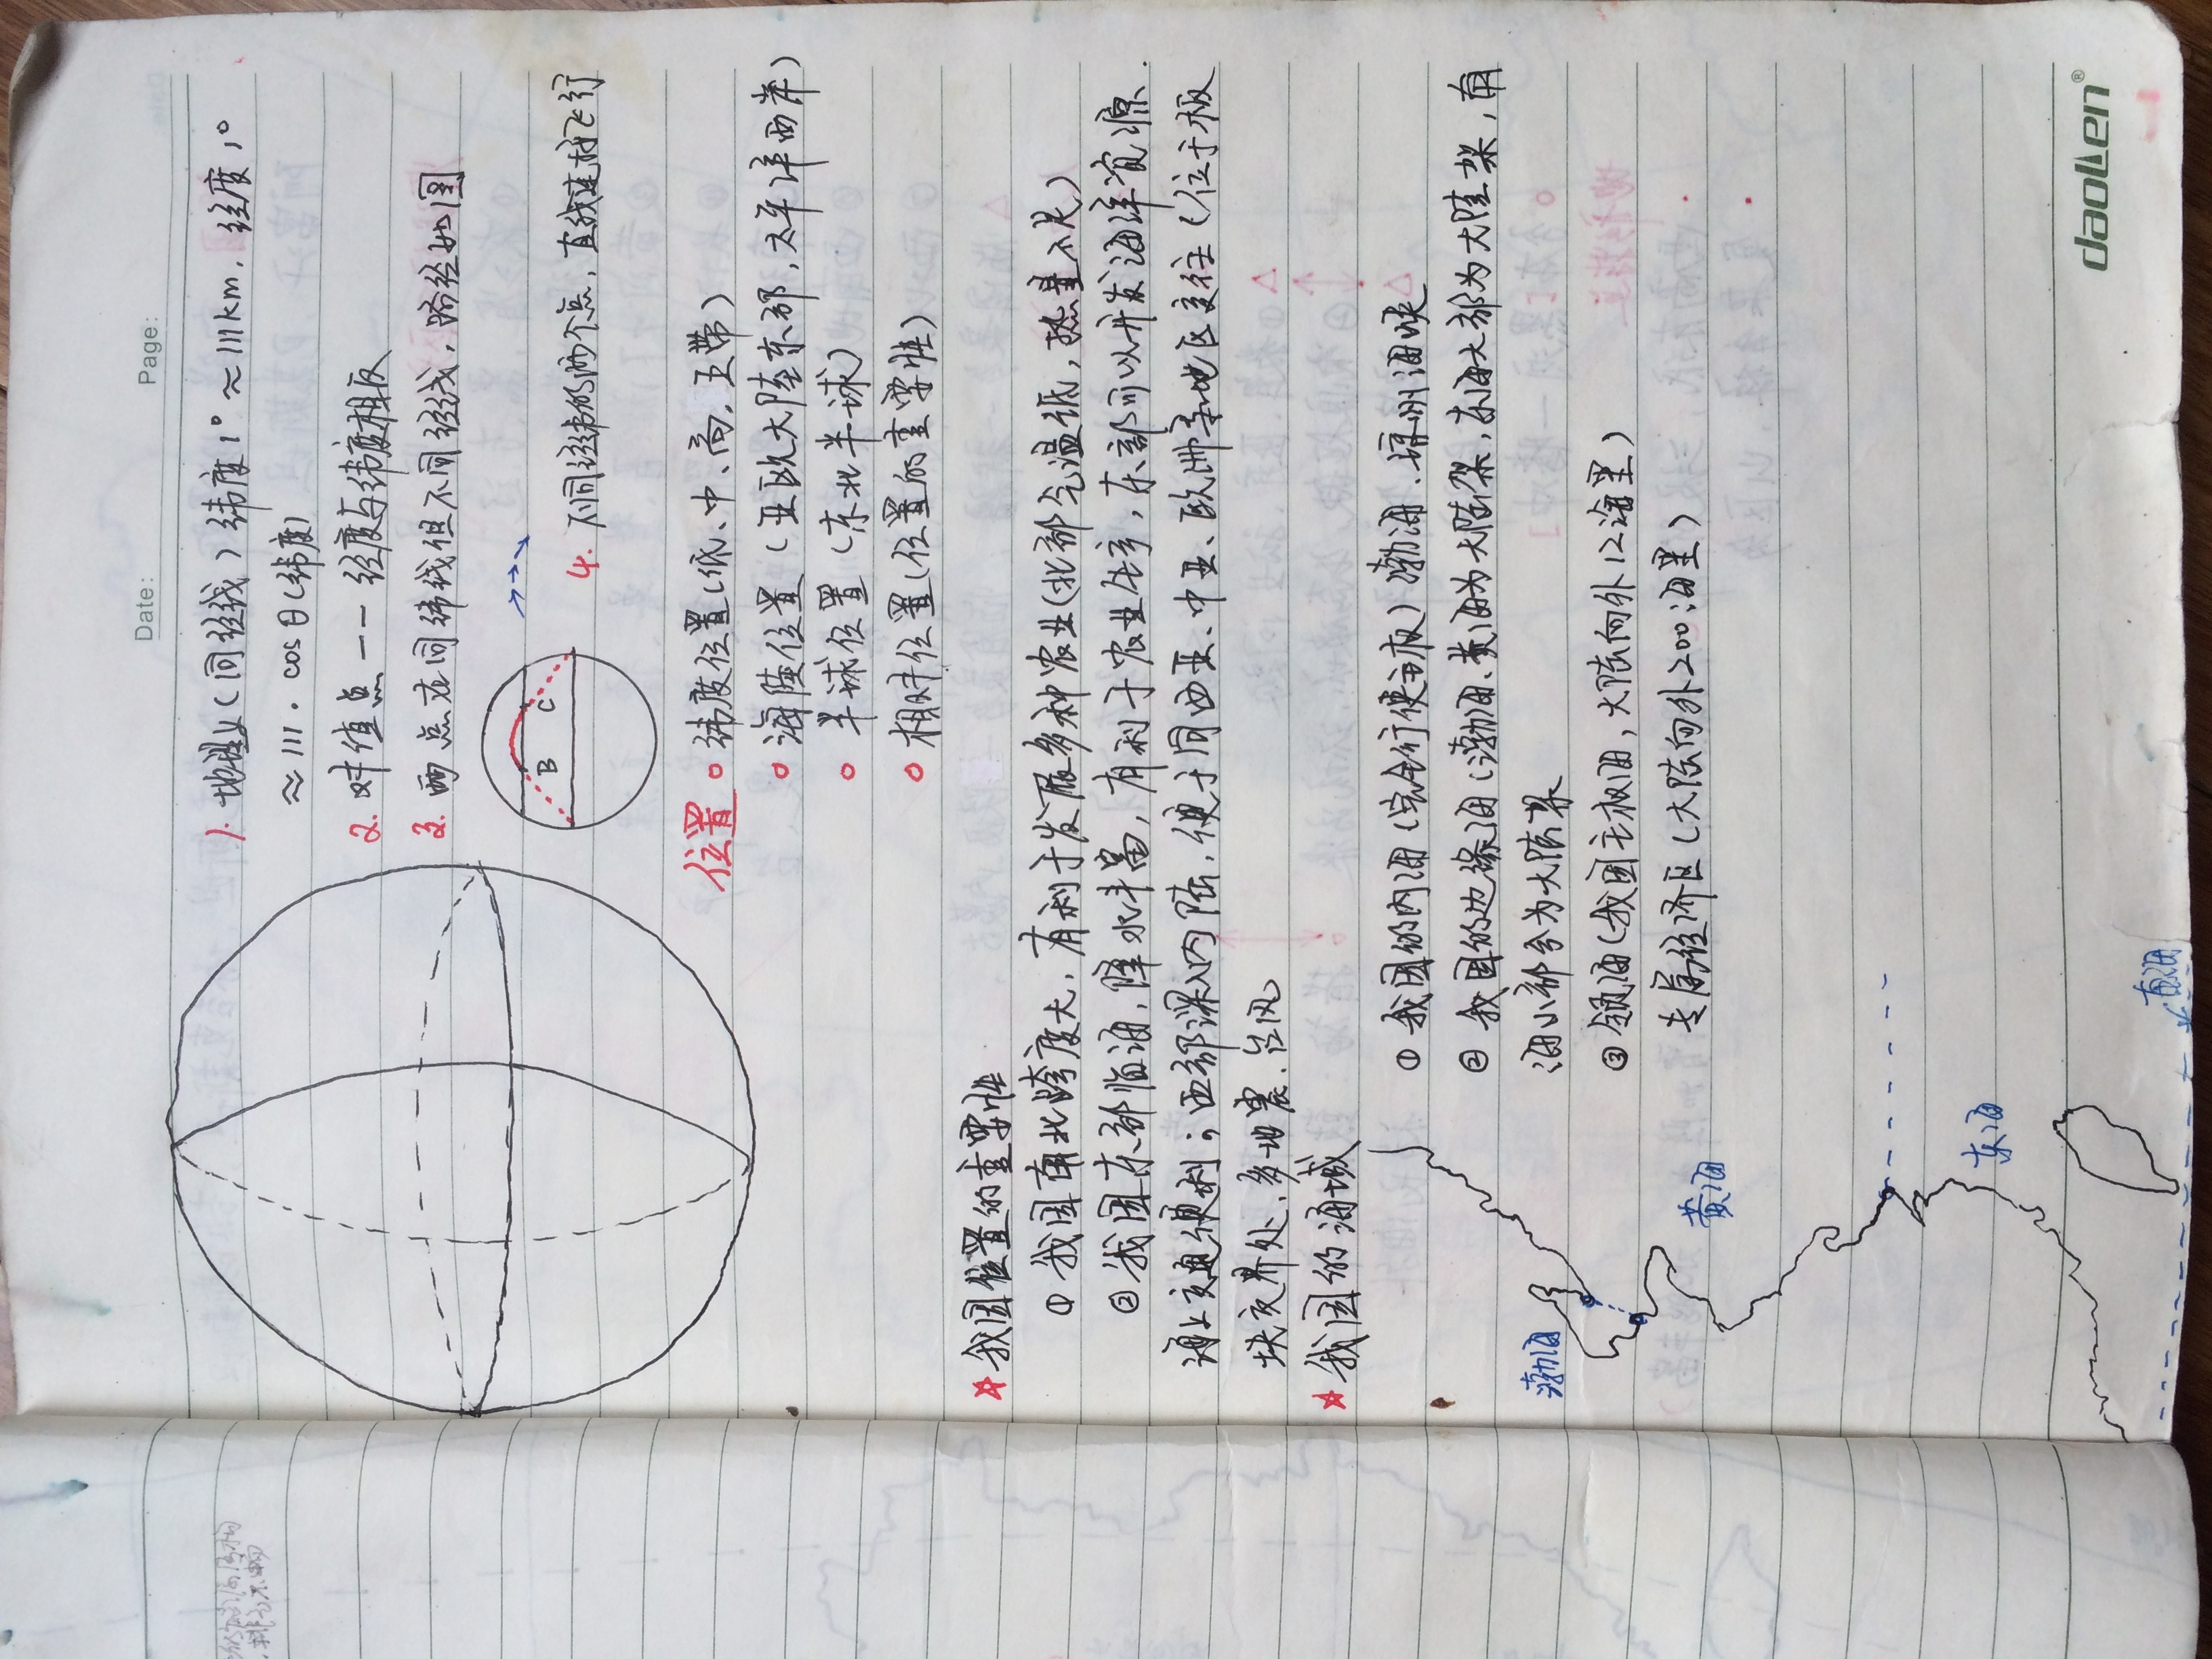 Date: Page:
1. 地理上(同经线)纬度1°≈111km, 经度1°
≈111·cosθ(纬度)
2. 对值点——经度与纬度相反
3. 两点在同纬线但不同经线,路径如图
B C
4. 不同经纬的两个点,直线连接飞行
位置 纬度位置(低、中、高,五带)
海陆位置(亚欧大陆东部,太平洋西岸)
半球位置(东北半球)
相对位置(位置的重要性)
☆我国位置的重要性
①我国南北跨度大,有利于发展多种农业(北部气温低,热量不足)
②我国东部临海,降水丰富,有利于农业生产,东部可以开发海洋资源.
海上交通便利;西部深入内陆,便于同西亚、中亚、欧洲等地区交往(位于板
块交界处,多地震、台风
☆我国的海域
①我国的内海(完全行使主权)渤海、琼州海峡
②我国的边缘海(渤海、黄海为大陆架,东海大部为大陆架,南
海小部分为大陆架
渤海
③领海(我国主权海,大陆向外12海里)
专属经济区(大陆向外200海里)
黄海
东海
南海
daolen®